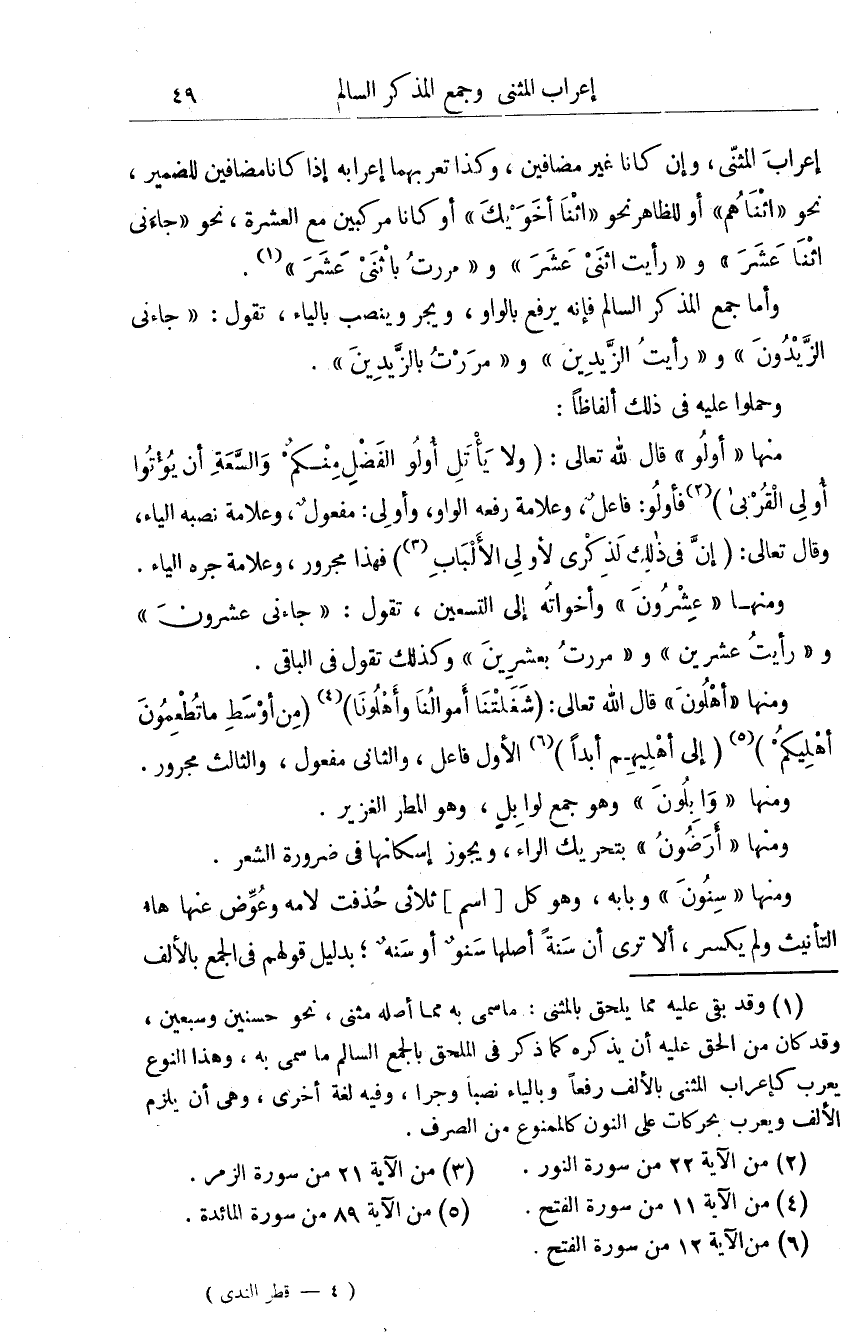 إعراب المثنى وجمع المذكر السالم ٤٩
إعرابَ المثنّى، وإن كانا غير مضافين، وكذا تعربهما إعرابه إذا كانا مضافين للضمير،
نحو «اثْنَاهُم» أو للظاهر نحو «اثْنَا أخَوَيْكَ» أو كانا مركبين مع العشرة، نحو «جاءنى
اثْنَا عَشَرَ» و «رأيت اثنَىْ عَشَرَ» و «مررتُ باثْنَىْ عَشَرَ»(١).
وأما جمع المذكر السالم فإنه يرفع بالواو، ويجر وينصب بالياء، تقول: «جاءنى
الزَّيْدُونَ» و «رأيتُ الزَّيدِين» و «مرَرْتُ بالزَّيدِينَ».
وحملوا عليه فى ذلك ألفاظاً:
منها «أولُو» قال لله تعالى: (ولا يَأْتَلِ أُولُو الفَضْلِ مِنْكمْ وَالسَّعَةِ أن يُؤْتُوا
أُولِى الْقُرْبىٰ)(٢) فأولُو: فاعلٌ، وعلامة رفعه الواو، وأولِى: مفعولٌ، وعلامة نصبه الياء،
وقال تعالى: (إنَّ فى ذٰلِكَ لَذِكْرى لأولِى الأَلْبَابِ(٣)) فهذا مجرور، وعلامة جره الياء.
ومنها «عِشْرُونَ» وأخواتُه إلى التسعين، تقول: «جاءنى عشرونَ»
و «رأيتُ عشرين» و «مررتُ بعشرِينَ» وكذلك تقول فى الباقى.
ومنها «أهْلُونَ» قال الله تعالى: (شَغَلَتْنَا أموالُنَا وأَهْلُونَا)(٤) (مِن أوْسَطِ ماتُطْعِمُونَ
أهْلِيكمْ)(٥) (إلى أهْلِيهِم أبداً)(٦) الأول فاعل، والثانى مفعول، والثالث مجرور.
ومنها «وَابِلُونَ» وهو جمع لوابِلٍ، وهو المطر الغزير.
ومنها «أَرَضُونُ» بتحريك الراء، ويجوز إسكانها فى ضرورة الشعر.
ومنها «سِنُونَ» وبابه، وهو كل [اسم] ثلاثى حُذفت لامه وعُوِّض عنها هاء
التأنيث ولم يكسر، ألا ترى أن سَنَةً أصلها سَنوٌ أو سَنهٌ؛ بدليل قولهم فى الجمع بالألف
(١) وقد بقى عليه مما يلحق بالمثنى: ماسمى به مما أصله مثنى، نحو حسنين وسبعين،
وقد كان من الحق عليه أن يذكره كما ذكر فى الملحق بالجمع السالم ما سمى به، وهذا النوع
يعرب كإعراب المثنى بالألف رفعاً وبالياء نصباً وجرا، وفيه لغة أخرى، وهى أن يلزم
الألف ويعرب بحركات على النون كالممنوع من الصرف.
(٢) من الآية ٢٢ من سورة النور. (٣) من الآية ٢١ من سورة الزمر.
(٤) من الآية ١١ من سورة الفتح. (٥) من الآية ٨٩ من سورة المائدة.
(٦) من الآية ١٢ من سورة الفتح.
(٤ — قطر الندى)